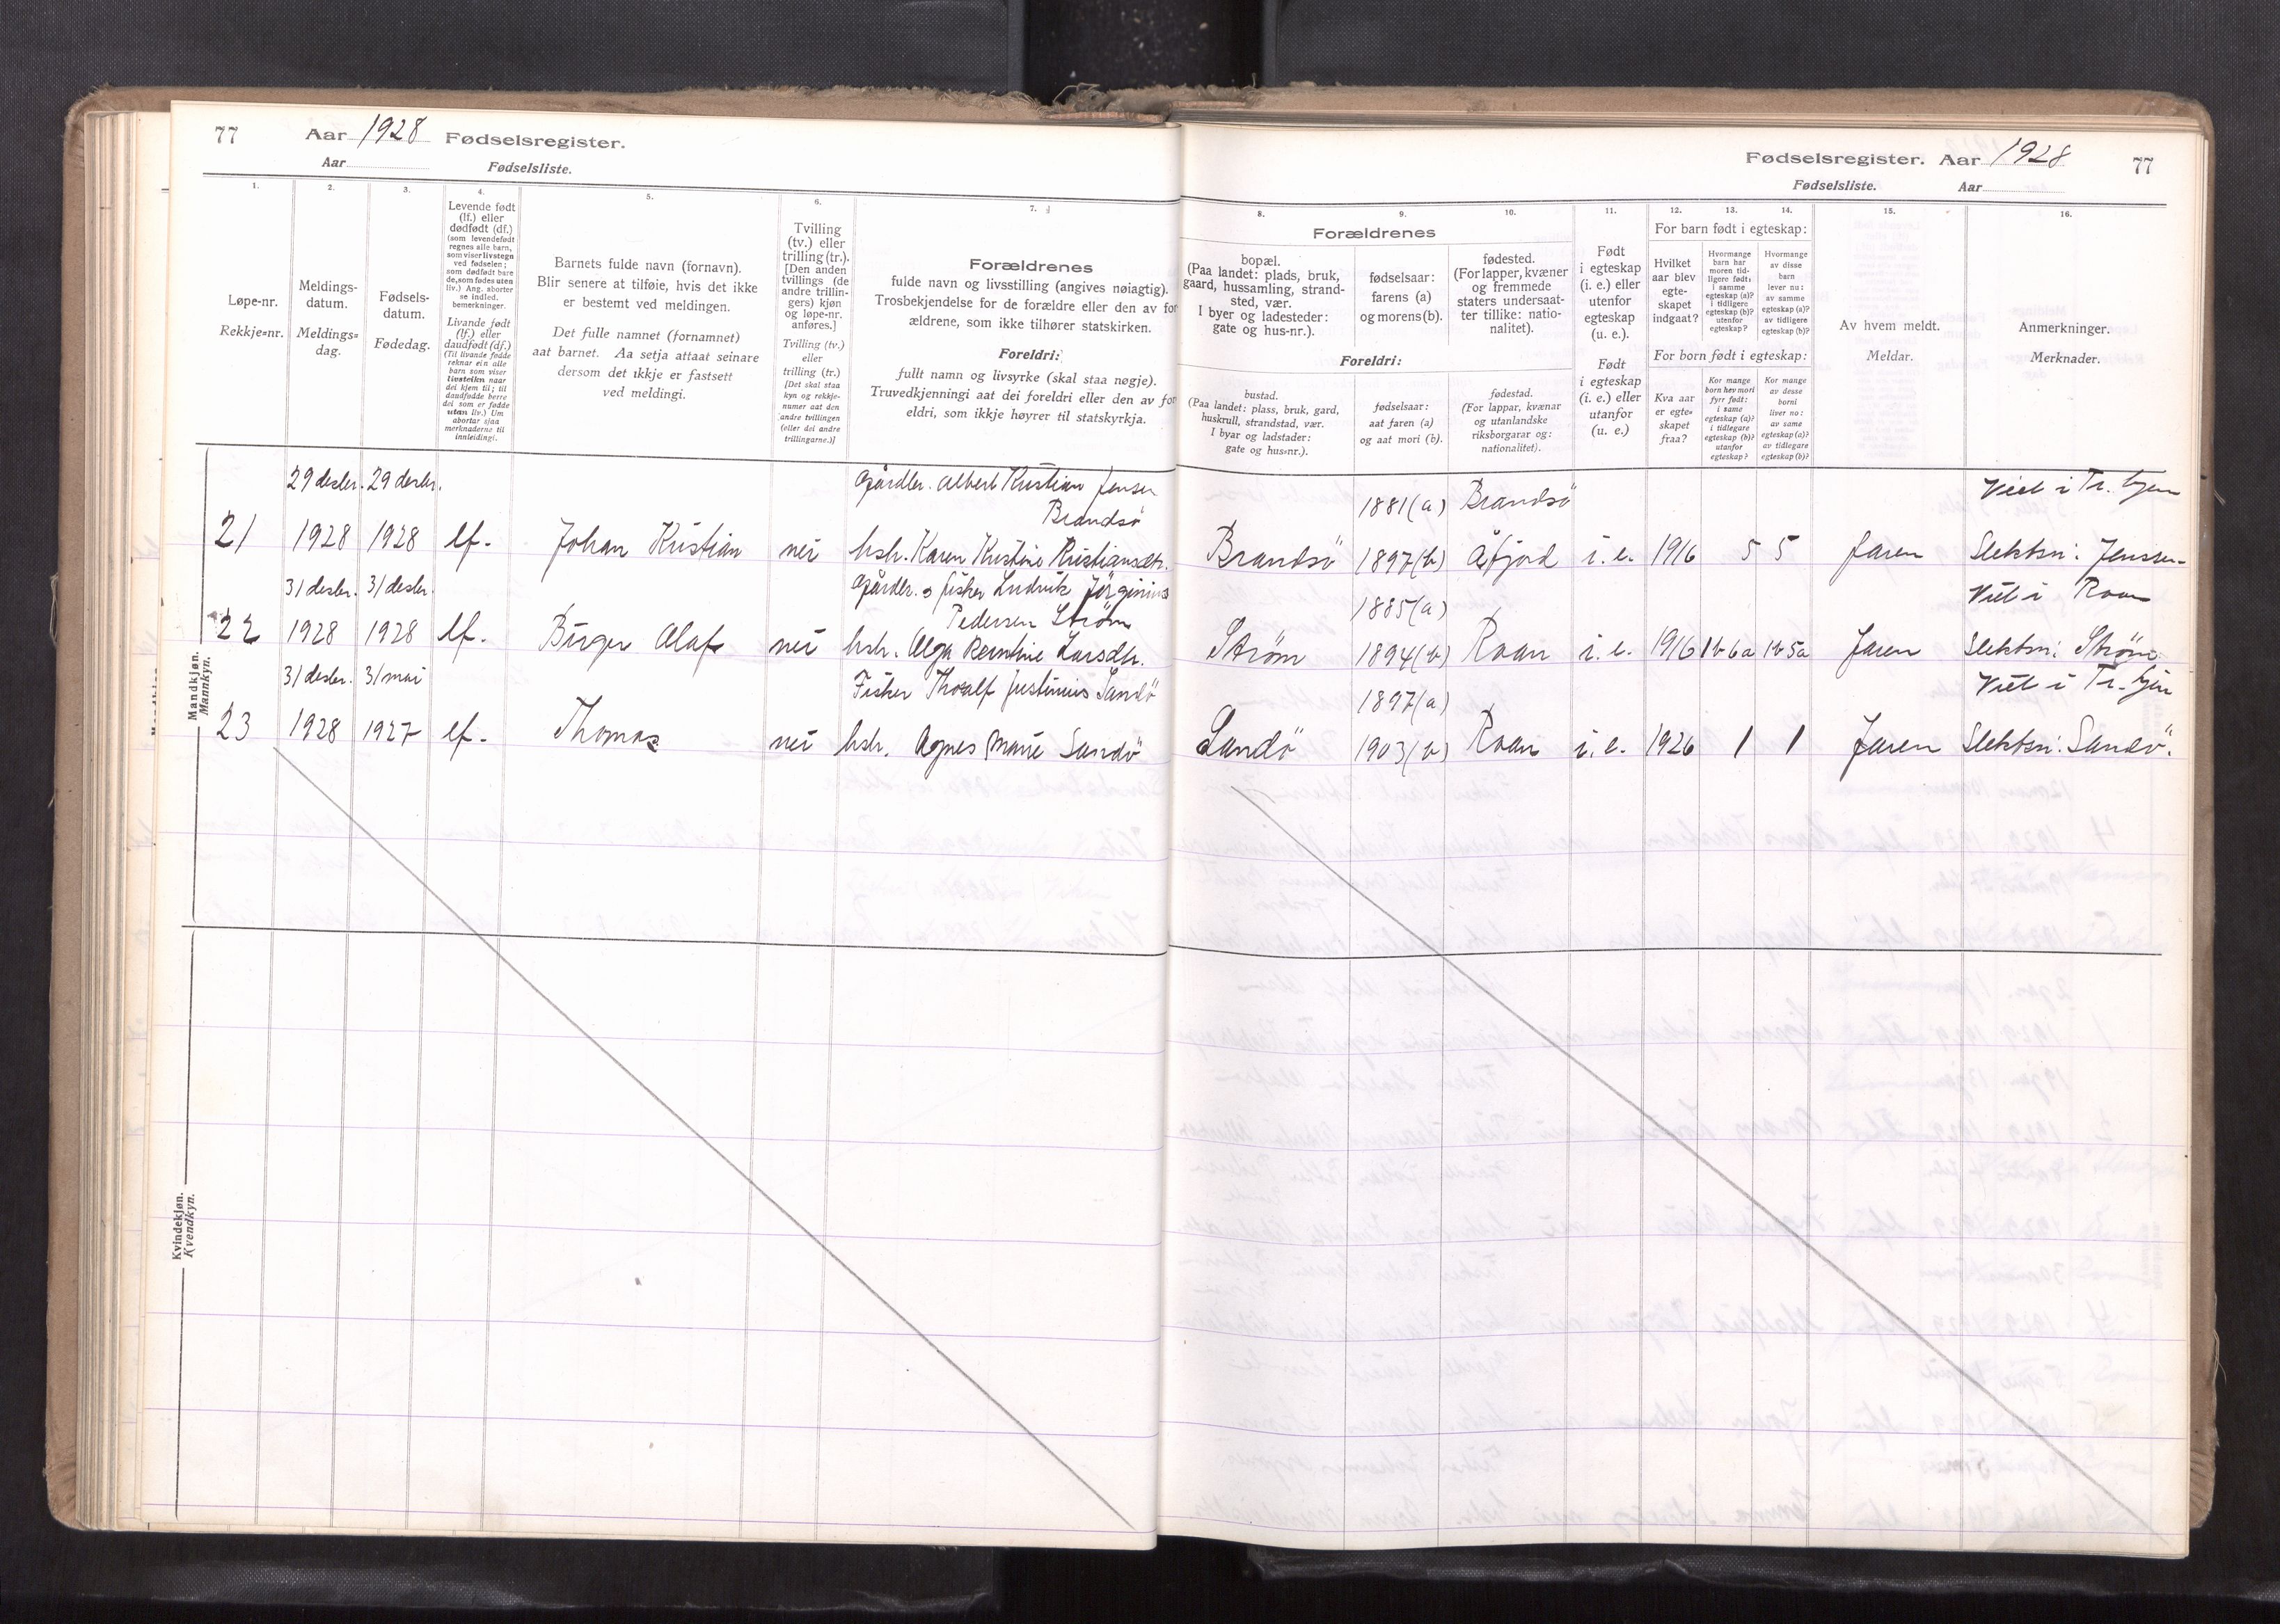 77 Aar 1928 Fødselsregister.
Aar Fødselsliste.
Fødselsregister. Aar 1928 77
Fødselsliste. Aar
1.
Løpe-nr.
Rekkje=nr.
2.
Meldings-
datum.
Meldings=
dag.
3.
Fødsels-
datum.
Fødedag.
4.
Levende født
(lf.) eller
dødfødt (df.)
(som levendefødt
regnes alle barn,
som viser livstegn
ved fødselen;
som dødfødt bare
de, som fødes uten
liv.) Ang. aborter
se indled.
bemerkninger.
Livande født
(lf.) eller
daudfødt (df.)
(Til livande fødde
reknar ein alle
barn som viser
livsteikn naar
dei kjem til; til
daudfødde berre
dei som er fødde
utan liv.) Um
abortar sjaa
merknaderne til
innleidingi.
5.
Barnets fulde navn (fornavn).
Blir senere at tilføie, hvis det ikke
er bestemt ved meldingen.
Det fulle namnet (fornamnet)
aat barnet. Aa setja attaat seinare
dersom det ikkje er fastsett
ved meldingi.
6.
Tvilling
(tv.) eller
trilling (tr.).
[Den anden
tvillings (de
andre trillin-
gers) kjøn
og løpe-nr.
anføres.]
Tvilling (tv.)
eller
trilling (tr.)
[Det skal staa
kyn og rekkje-
numer aat den
andre tvillingen
(eller dei andre
trillingarne.)]
7.
Forældrenes
fulde navn og livsstilling (angives nøiagtig).
Trosbekjendelse for de forældre eller den av for
ældrene, som ikke tilhører statskirken.
Foreldri:
fullt namn og livsyrke (skal staa nøgje).
Truvedkjenningi aat dei foreldri eller den av for
eldri, som ikkje høyrer til statskyrkja.
Forældrenes
8.
bopæl.
(Paa landet: plads, bruk,
gaard, hussamling, strand-
sted, vær.
I byer og ladesteder:
gate og hus-nr.).
9.
fødselsaar:
farens (a)
og morens (b).
10.
fødested.
(For lapper, kvæner
og fremmede
staters undersaat-
ter tillike: natio-
nalitet).
Foreldri:
bustad.
(Paa landet: plass, bruk, gard,
huskrull, strandstad, vær.
I byar og ladstader:
gate og hus=nr.).
fødselsaar:
aat faren (a)
og aat mori (b).
fødestad.
(For lappar, kvænar
og utanlandske
riksborgarar og:
nationalitet).
11.
Født
i egteskap
(i. e.) eller
utenfor
egteskap
(u. e.).
Født
i egteskap
(i. e.) eller
utanfor
(u. e.)
For barn født i egteskap:
12.
Hvilket
aar blev
egte-
skapet
indgaat?
13.
Hvormange
barn har
moren tid-
ligere født:
i samme
egteskap (a)?
i tidligere
egteskap (b)?
utenfor
egteskap?
14.
Hvormange
av disse
barn
lever nu:
av samme
egteskap (a)?
av tidligere
egteskap (b)?
For born født i egteskap:
Kva aar
er egte=
skapet
fraa?
Kor mange
born hev mori
fyrr født:
i same
egteskap (a)?
i tidlegare
egteskap (b)?
utanfor
egteskap?
Kor mange
av desse
borni
liver no:
av same
egteskap (a)?
av tidlegare
egteskap (b)?
15.
Av hvem meldt.
Meldar.
16.
Anmerkninger.
Merknader.
Mandkjøn.
Mannkyn.
29 desbr. 29 desbr. Gårdbr. Albert Kristian Jensen
Brandsö
1881(a) Brandsö Viet i Tr. hjem
21 1928 1928 lf. Johan Kristian nei hstr. Karen Kristine Kristiansdtr. Brandsö 1897(b) Åfjord i. e. 1916 5 5 Faren Slektsn: Jenssen
31 desbr. 31 desbr. Gårdbr. o fisker Ludvik Jörginius
Pedersen Ström
1885(a) Viet i Roan
22 1928 1928 lf. Birger Olaf nei hstr. Olga Berntine Larsdtr. Ström 1894(b) Roan i. e. 1916 1b 6a 1b 5a Faren Slektsn: Ström
31 desbr. 31 mai Fisker Thoralf Justinius Sandö 1897(a) Viet i Tr. hjem
23 1928 1927 lf. Thomas nei hstr. Agnes Marie Sandö Sandö 1903(b) Roan i. e. 1926 1 1 Faren Slektsn: Sandö.
Kvindekjøn.
Kvendkyn.